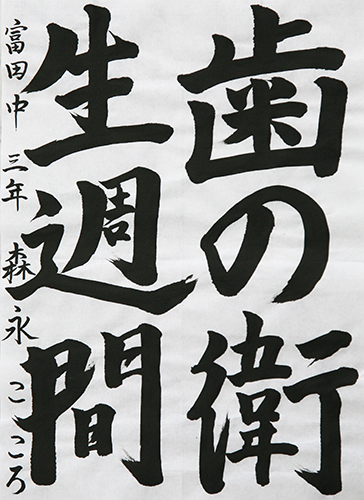 歯の衛
生週間
富田中 三年 森永こころ